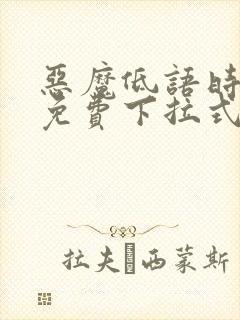 惡魔低語時
免費下拉式
拉夫 西蒙斯